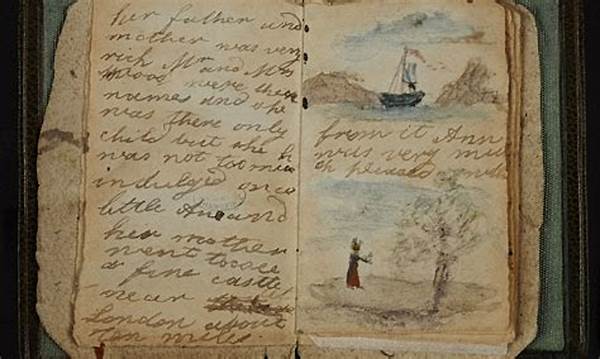 her father and
mother was very
rich Mr and Mrs
Wood were their
names and she
was there only
child but she
was not too much
indulged once
little Ane and
her mother
went to see
a fine castle
near
London about
ten miles
from it Ann
was very mu
pleased with